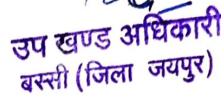 उप खण्ड अधिकारी
बस्सी (जिला जयपुर)